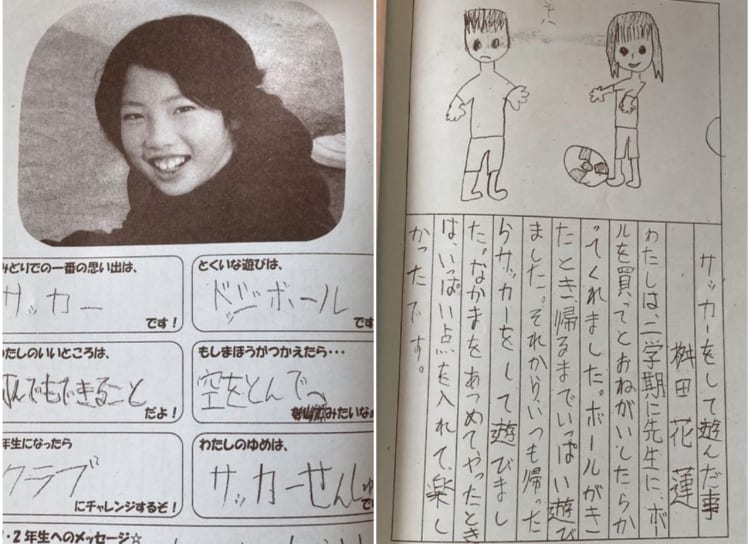 みどりでの一番の思い出は、
サッカー
です！
とくいな遊びは、
ドッジボール
です！
わたしのいいところは、
なんでもできること
だよ！
もしまほうがつかえたら・・・
空をとんで
みたいな
年生になったら
クラブ
にチャレンジするぞ！
わたしのゆめは、
サッカーせんしゅ
です
・２年生へのメッセージ☆
サッカーをして遊んだ事
桝田花蓮
わたしは、二学期に先生に、ボー
ルを買ってとおねがいしたらか
ってくれました。ボールがき
たとき、帰るまでいっぱい遊び
ました。それから、いつも帰った
らサッカーをして遊びまし
た。なかまをあつめてやったとき
は、いっぱい点を入れて、楽し
かったです。